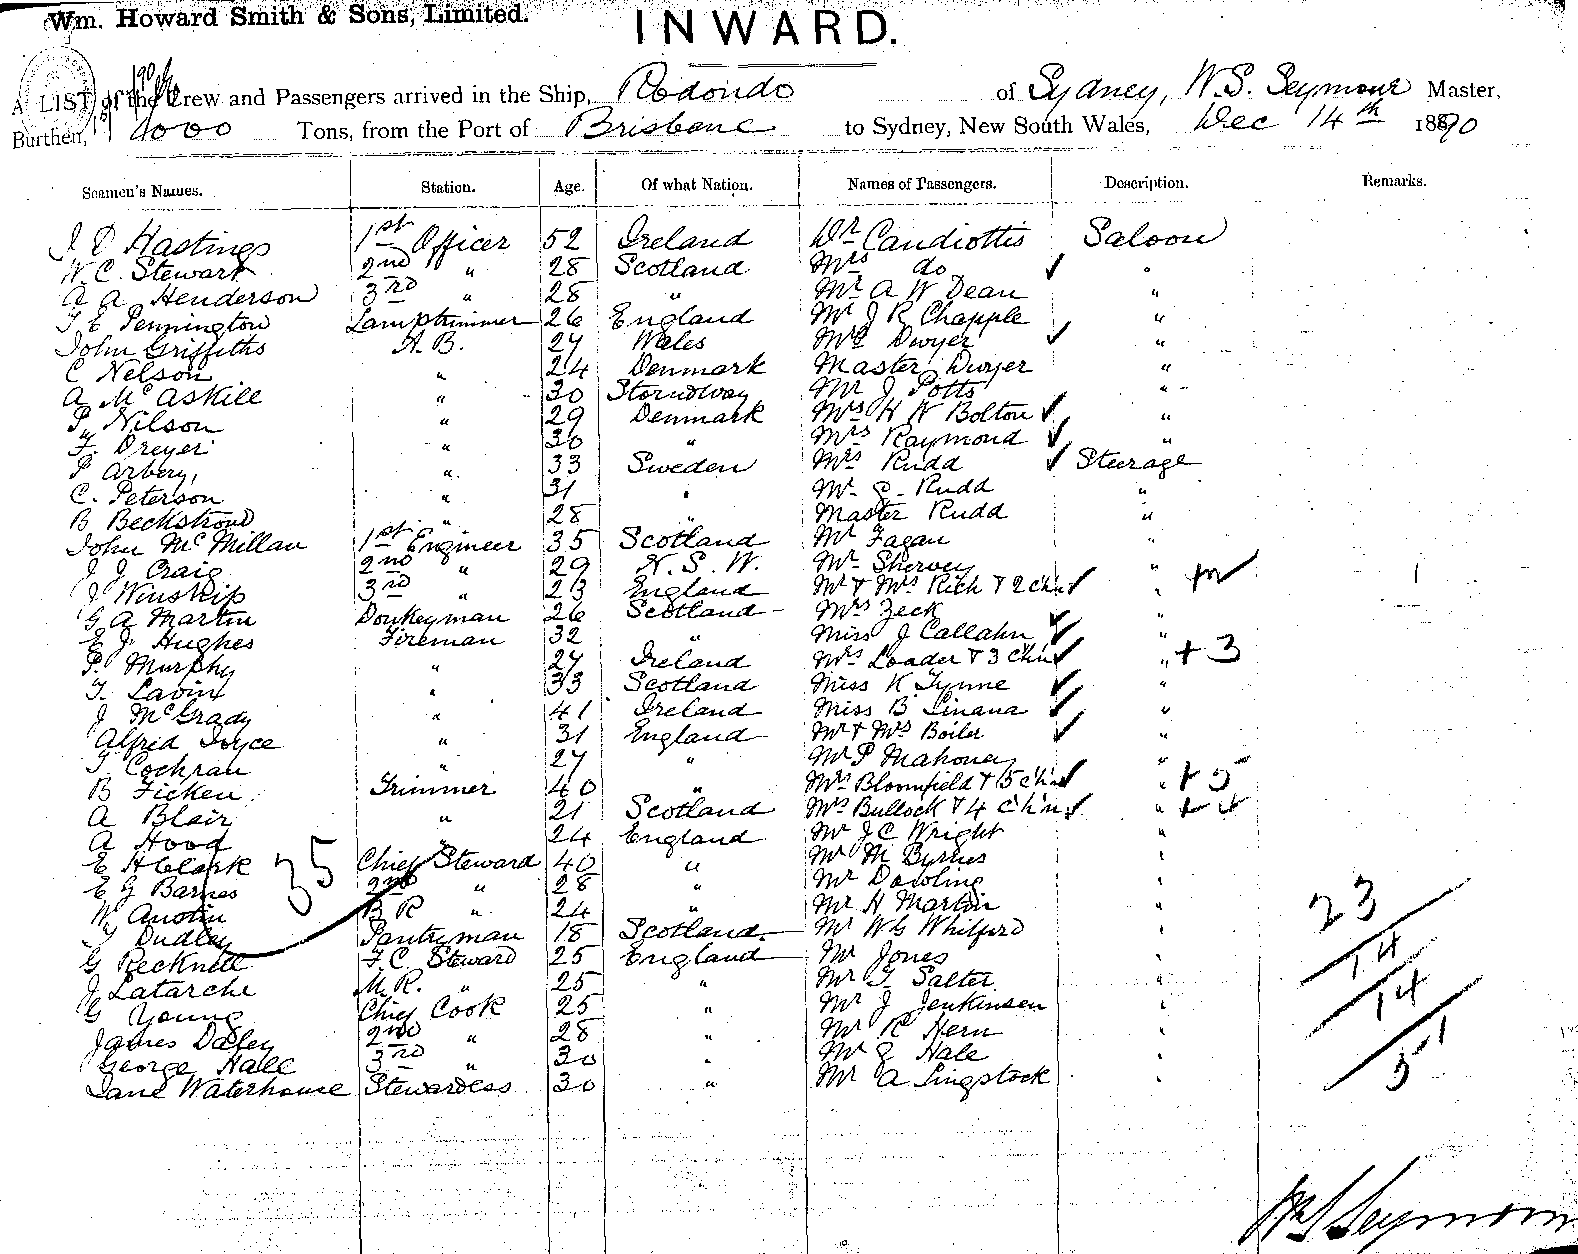 Wm. Howard Smith & Sons, Limited.
INWARD.
A LIST of the Crew and Passengers arrived in the Ship, Rodondo of Sydney, W. S. Seymour Master,
Burthen, Tons, from the Port of Brisbane to Sydney, New South Wales, Dec 14th 1890
Seamen's Names. Station. Age. Of what Nation. Names of Passengers. Description. Remarks.
Hastings 1st Officer 52 Ireland Dr Candiottis Saloon
W. C. Stewart 2nd " 28 Scotland Mrs do "
A A Henderson 3rd " 28 " Mr A W Dean "
T E Pennington Lamptrimmer 26 England Mr J R Chapple "
John Griffiths A. B. 27 Wales Mrs Dwyer "
C Nelson " 24 Denmark Master Dwyer "
A McAskill " 30 Stornoway Mr J Potts "
P. Nilson " 29 Denmark Mrs H W Bolton "
F. Dreyer " 30 " Mrs Raymond "
P Arbery, " 33 Sweden Mrs Rudd Steerage
C. Peterson " 31 " Mr Rudd "
B Beckstrom " 28 " Master Rudd "
John McMillan 1st Engineer 35 Scotland Mr Fagan "
J J Craig 2nd " 29 N. S. W. Mr Shervey "
J Winship 3rd " 23 England Mr & Mrs Rich & 2 chn "
G A Martin Donkeyman 26 Scotland Mrs Zeck "
E J. Hughes Fireman 32 " Miss J Callahn "
P. Murphy " 27 Ireland Mrs Loader & 3 chn " + 3
T. Lavin " 33 Scotland Miss K Tynne "
J McGrady " 41 Ireland Miss B Linana "
Alfrid Joyce " 31 England Mr & Mrs Boiler "
T. Cochran " 27 " Mr P Mahoney "
B Ficken Trimmer 40 " Mrs Bloomfield & 5 chn " + 5
A Blair " 21 Scotland Mrs Bullock & 4 chn " + 4
A Hood " 24 England Mr J C Wright "
E H Clark 35 Chief Steward 40 " Mr M Byrnes "
E G Barnes 2nd " 28 " Mr Dowling "
W Austin B R " 24 " Mr H Martin "
Dudley Pantryman 18 Scotland Mr W G Whilford "
G Recknell F. C. Steward 25 England Mr Jones "
J Latarche M. R. " 25 " Mr T Salter "
G Young Chief Cook 25 " Mr J Jenkinson "
James Daley 2nd " 28 " Mr R Hern "
George Hale 3rd " 30 " Mr Hale "
Jane Waterhouse Stewardess 30 " Mr A Lingstock "
23
14
14
51
Wm S Seymour